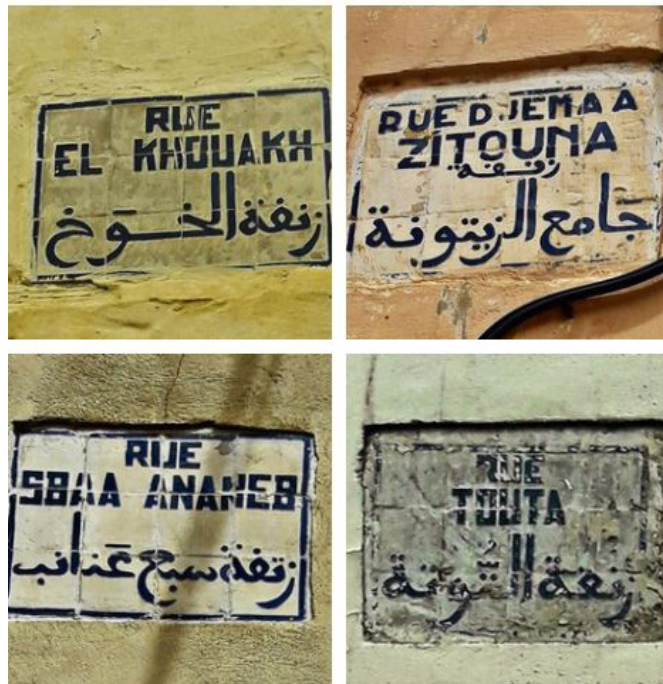 RUE
EL KHOUAKH
زنقة الخوخ
RUE DJEMAA
ZITOUNA
زنقة
جامع الزيتونة
RUE
SBAA ANANEB
زنقة سبع عنانب
RUE
TOUTA
زنقة التوتة